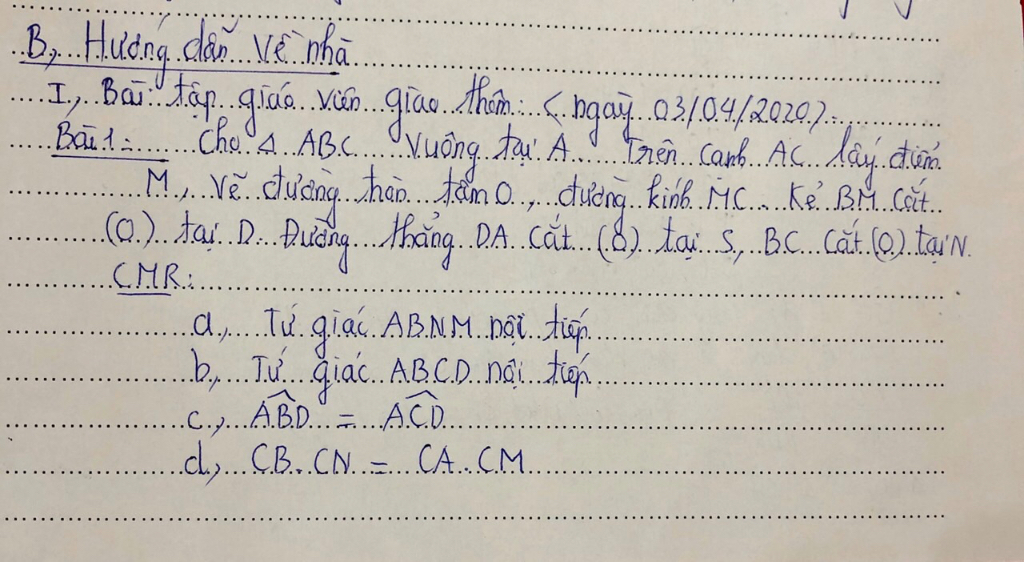 B, Hướng dẫn về nhà
I, Bài tập giáo viên giao thêm: < ngày 03/04/2020>.
Bài 1: Cho Δ ABC vuông tại A. Trên cạnh AC lấy điểm
M, vẽ đường tròn tâm O, đường kính MC. Kẻ BM cắt
(O) tại D. Đường thẳng DA cắt (O) tại S, BC cắt (O) tại N.
CMR:
a, Tứ giác ABNM nội tiếp
b, Tứ giác ABCD nội tiếp
c, \widehat{ABD} = \widehat{ACD}
d, CB.CN = CA.CM